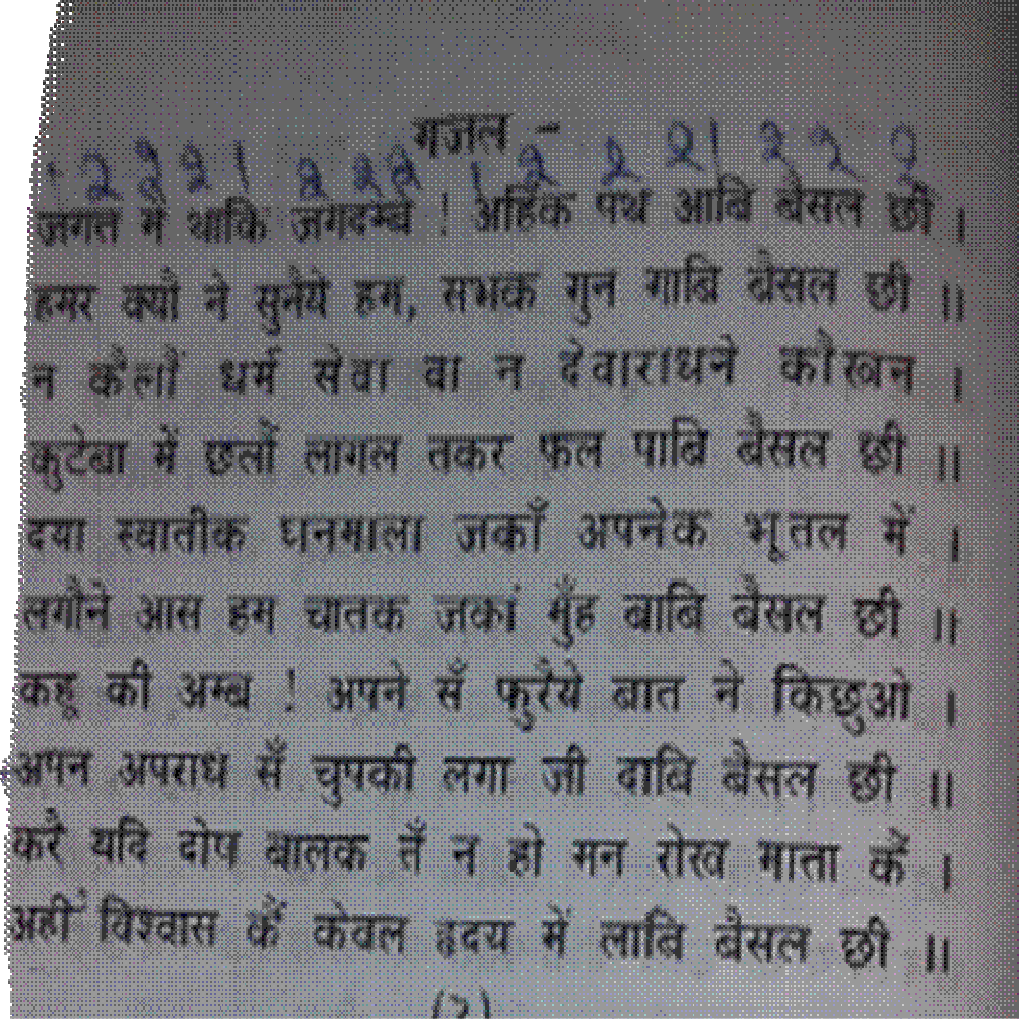 गजल -
। 2 2 2 । 2 2 2 । 2 2 2 । 2 2 2
जगत में थाकि जगदम्बे ! अहिंक पथ आबि बैसल छी ।
हमर क्यौ ने सुनैये हम, सभक गुन गाबि बैसल छी ॥
न कैलौं धर्म सेवा वा न देवाराधने कौखन ।
कुटेबा में छलौं लागल तकर फल पाबि बैसल छी ॥
दया स्वातीक घनमाला जकाँ अपनेक भूतल में ।
लगौने आस हम चातक जकां मुँह बाबि बैसल छी ॥
कहू की अम्ब ! अपने सँ फुरैये बात ने किछुओ ।
अपन अपराध सँ चुपकी लगा जी दाबि बैसल छी ॥
करै यदि दोष बालक तँ न हो मन रोख माता कें ।
अहीं विश्वास कें केवल हृदय में लाबि बैसल छी ॥
(२)